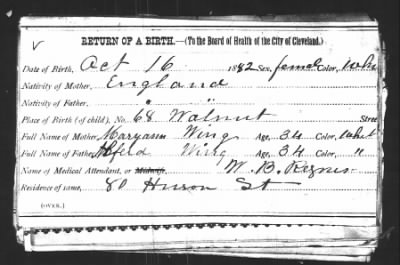 RETURN OF A BIRTH.—(To the Board of Health of the City of Cleveland.)
Date of Birth, Oct 16 1882 Sex, female Color, Whi
Nativity of Mother, England
Nativity of Father, " "
Place of Birth (of child), No. 68 Walnut Street
Full Name of Mother, Maryann Wing Age, 34 Color, Whit
Full Name of Father, Wing Age, 34 Color, "
Name of Medical Attendant, or Midwife, W. B.
Residence of same, 80 Huron St
(OVER.)